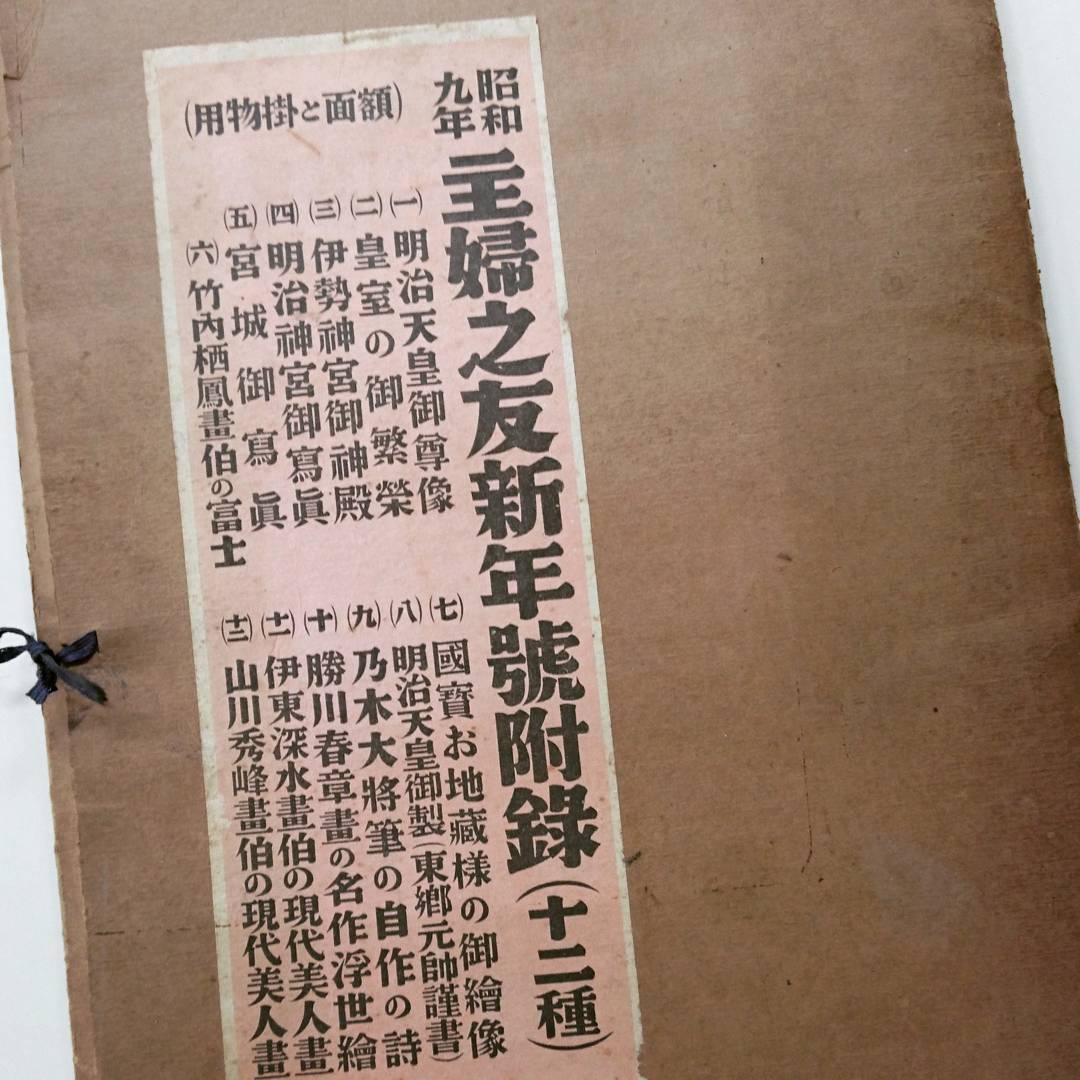 昭和
九年
主婦之友新年號附錄(十二種)
(額面と掛物用)
㈠明治天皇御尊像
㈡皇室の御繁榮
㈢伊勢神宮御神殿
㈣明治神宮御寫眞
㈤宮城御寫眞
㈥竹內栖鳳畫伯の富士
㈦國寶お地藏樣の御繪像
㈧明治天皇御製(東鄉元帥謹書)
㈨乃木大將筆の自作の詩
㈩勝川春章畫の名作浮世繪
(十一)伊東深水畫伯の現代美人畫
(十二)山川秀峰畫伯の現代美人畫